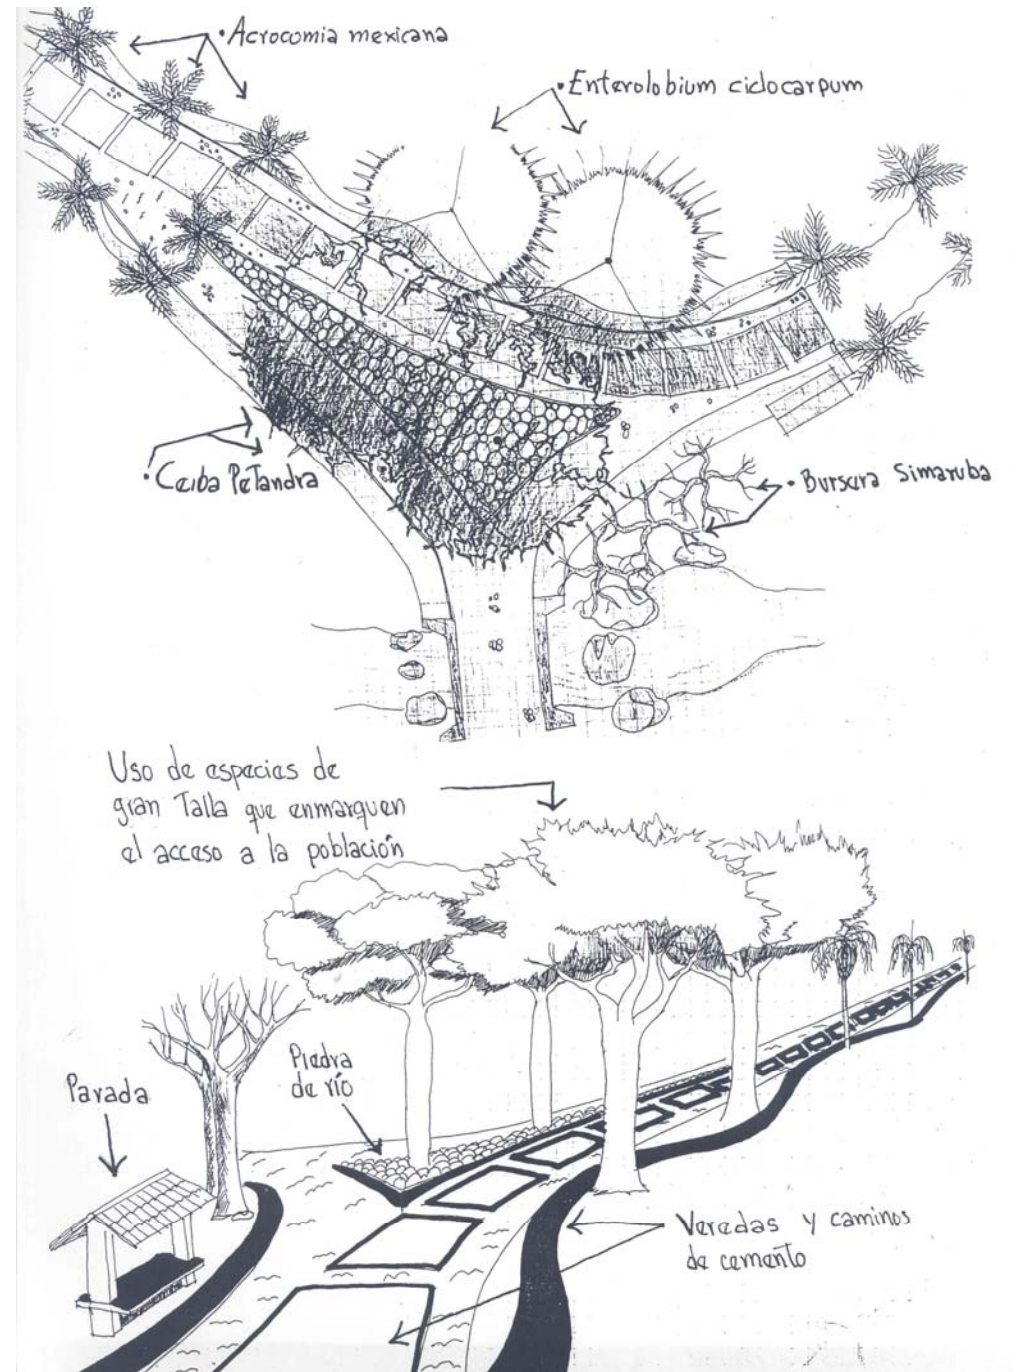 • Acrocomia mexicana
• Enterolobium ciclocarpum
• Ceiba Petandra
• Bursera Simaruba
Uso de especies de
gran Talla que enmarquen
el acceso a la población
Parada
Piedra
de río
Veredas y caminos
de cemento